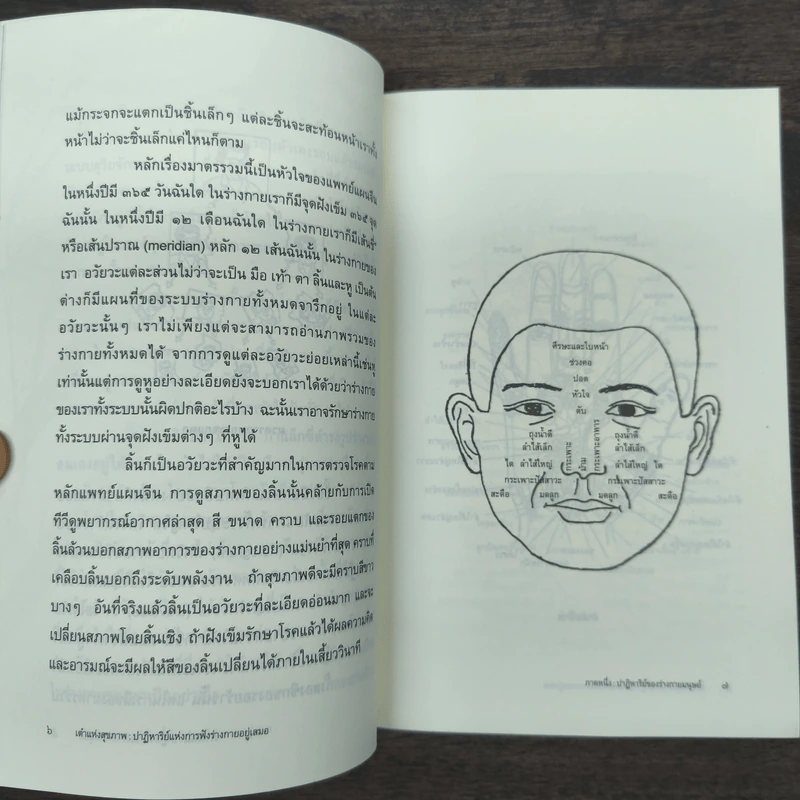 แม้กระจกจะแตกเป็นชิ้นเล็กๆ แต่ละชิ้นจะสะท้อนหน้าเราทั้ง
หน้าไม่ว่าจะชิ้นเล็กแค่ไหนก็ตาม
หลักเรื่องมาตรรวมนี้เป็นหัวใจของแพทย์แผนจีน
ในหนึ่งปีมี ๓๖๕ วันฉันใด ในร่างกายเราก็มีจุดฝังเข็ม ๓๖๕ จุด
ฉันนั้น ในหนึ่งปีมี ๑๒ เดือนฉันใด ในร่างกายเราก็มีเส้นชี่
หรือเส้นปราณ (meridian) หลัก ๑๒ เส้นฉันนั้น ในร่างกายของ
เรา อวัยวะแต่ละส่วนไม่ว่าจะเป็น มือ เท้า ตา ลิ้นและหู เป็นต้น
ต่างก็มีแผนที่ของระบบร่างกายทั้งหมดจารึกอยู่ ในแต่ละ
อวัยวะนั้นๆ เราไม่เพียงแต่จะสามารถอ่านภาพรวมของ
ร่างกายทั้งหมดได้ จากการดูแต่ละอวัยวะย่อยเหล่านี้เช่นหู
เท่านั้นแต่การดูหูอย่างละเอียดยังจะบอกเราได้ด้วยว่าร่างกาย
ของเราทั้งระบบนั้นผิดปกติอะไรบ้าง ฉะนั้นเราอาจรักษาร่างกาย
ทั้งระบบผ่านจุดฝังเข็มต่างๆ ที่หูได้
ลิ้นก็เป็นอวัยวะที่สำคัญมากในการตรวจโรคตาม
หลักแพทย์แผนจีน การดูสภาพของลิ้นนั้นคล้ายกับการเปิด
ทีวีดูพยากรณ์อากาศล่าสุด สี ขนาด คราบ และรอยแตกของ
ลิ้นล้วนบอกสภาพอาการของร่างกายอย่างแม่นยำที่สุด คราบที่
เคลือบลิ้นบอกถึงระดับพลังงาน ถ้าสุขภาพดีจะมีคราบสีขาว
บางๆ อันที่จริงแล้วลิ้นเป็นอวัยวะที่ละเอียดอ่อนมาก และจะ
เปลี่ยนสภาพโดยสิ้นเชิง ถ้าฝังเข็มรักษาโรคแล้วได้ผลความคิด
และอารมณ์จะมีผลให้สีของลิ้นเปลี่ยนได้ภายในเสี้ยววินาที
๖ เต๋าแห่งสุขภาพ : ปาฏิหาริย์แห่งการฟังร่างกายอยู่เสมอ
ศีรษะและใบหน้า
ช่วงคอ
ปอด
หัวใจ
ตับ
ถุงน้ำดี ถุงน้ำดี
ลำไส้เล็ก ลำไส้เล็ก
กระเพาะ ม้าม กระเพาะอาหาร
ไต ลำไส้ใหญ่ ลำไส้ใหญ่ ไต
กระเพาะปัสสาวะ กระเพาะปัสสาวะ
สะดือ มดลูก มดลูก สะดือ
ภาคหนึ่ง : ปาฏิหาริย์ของร่างกายมนุษย์ ๗